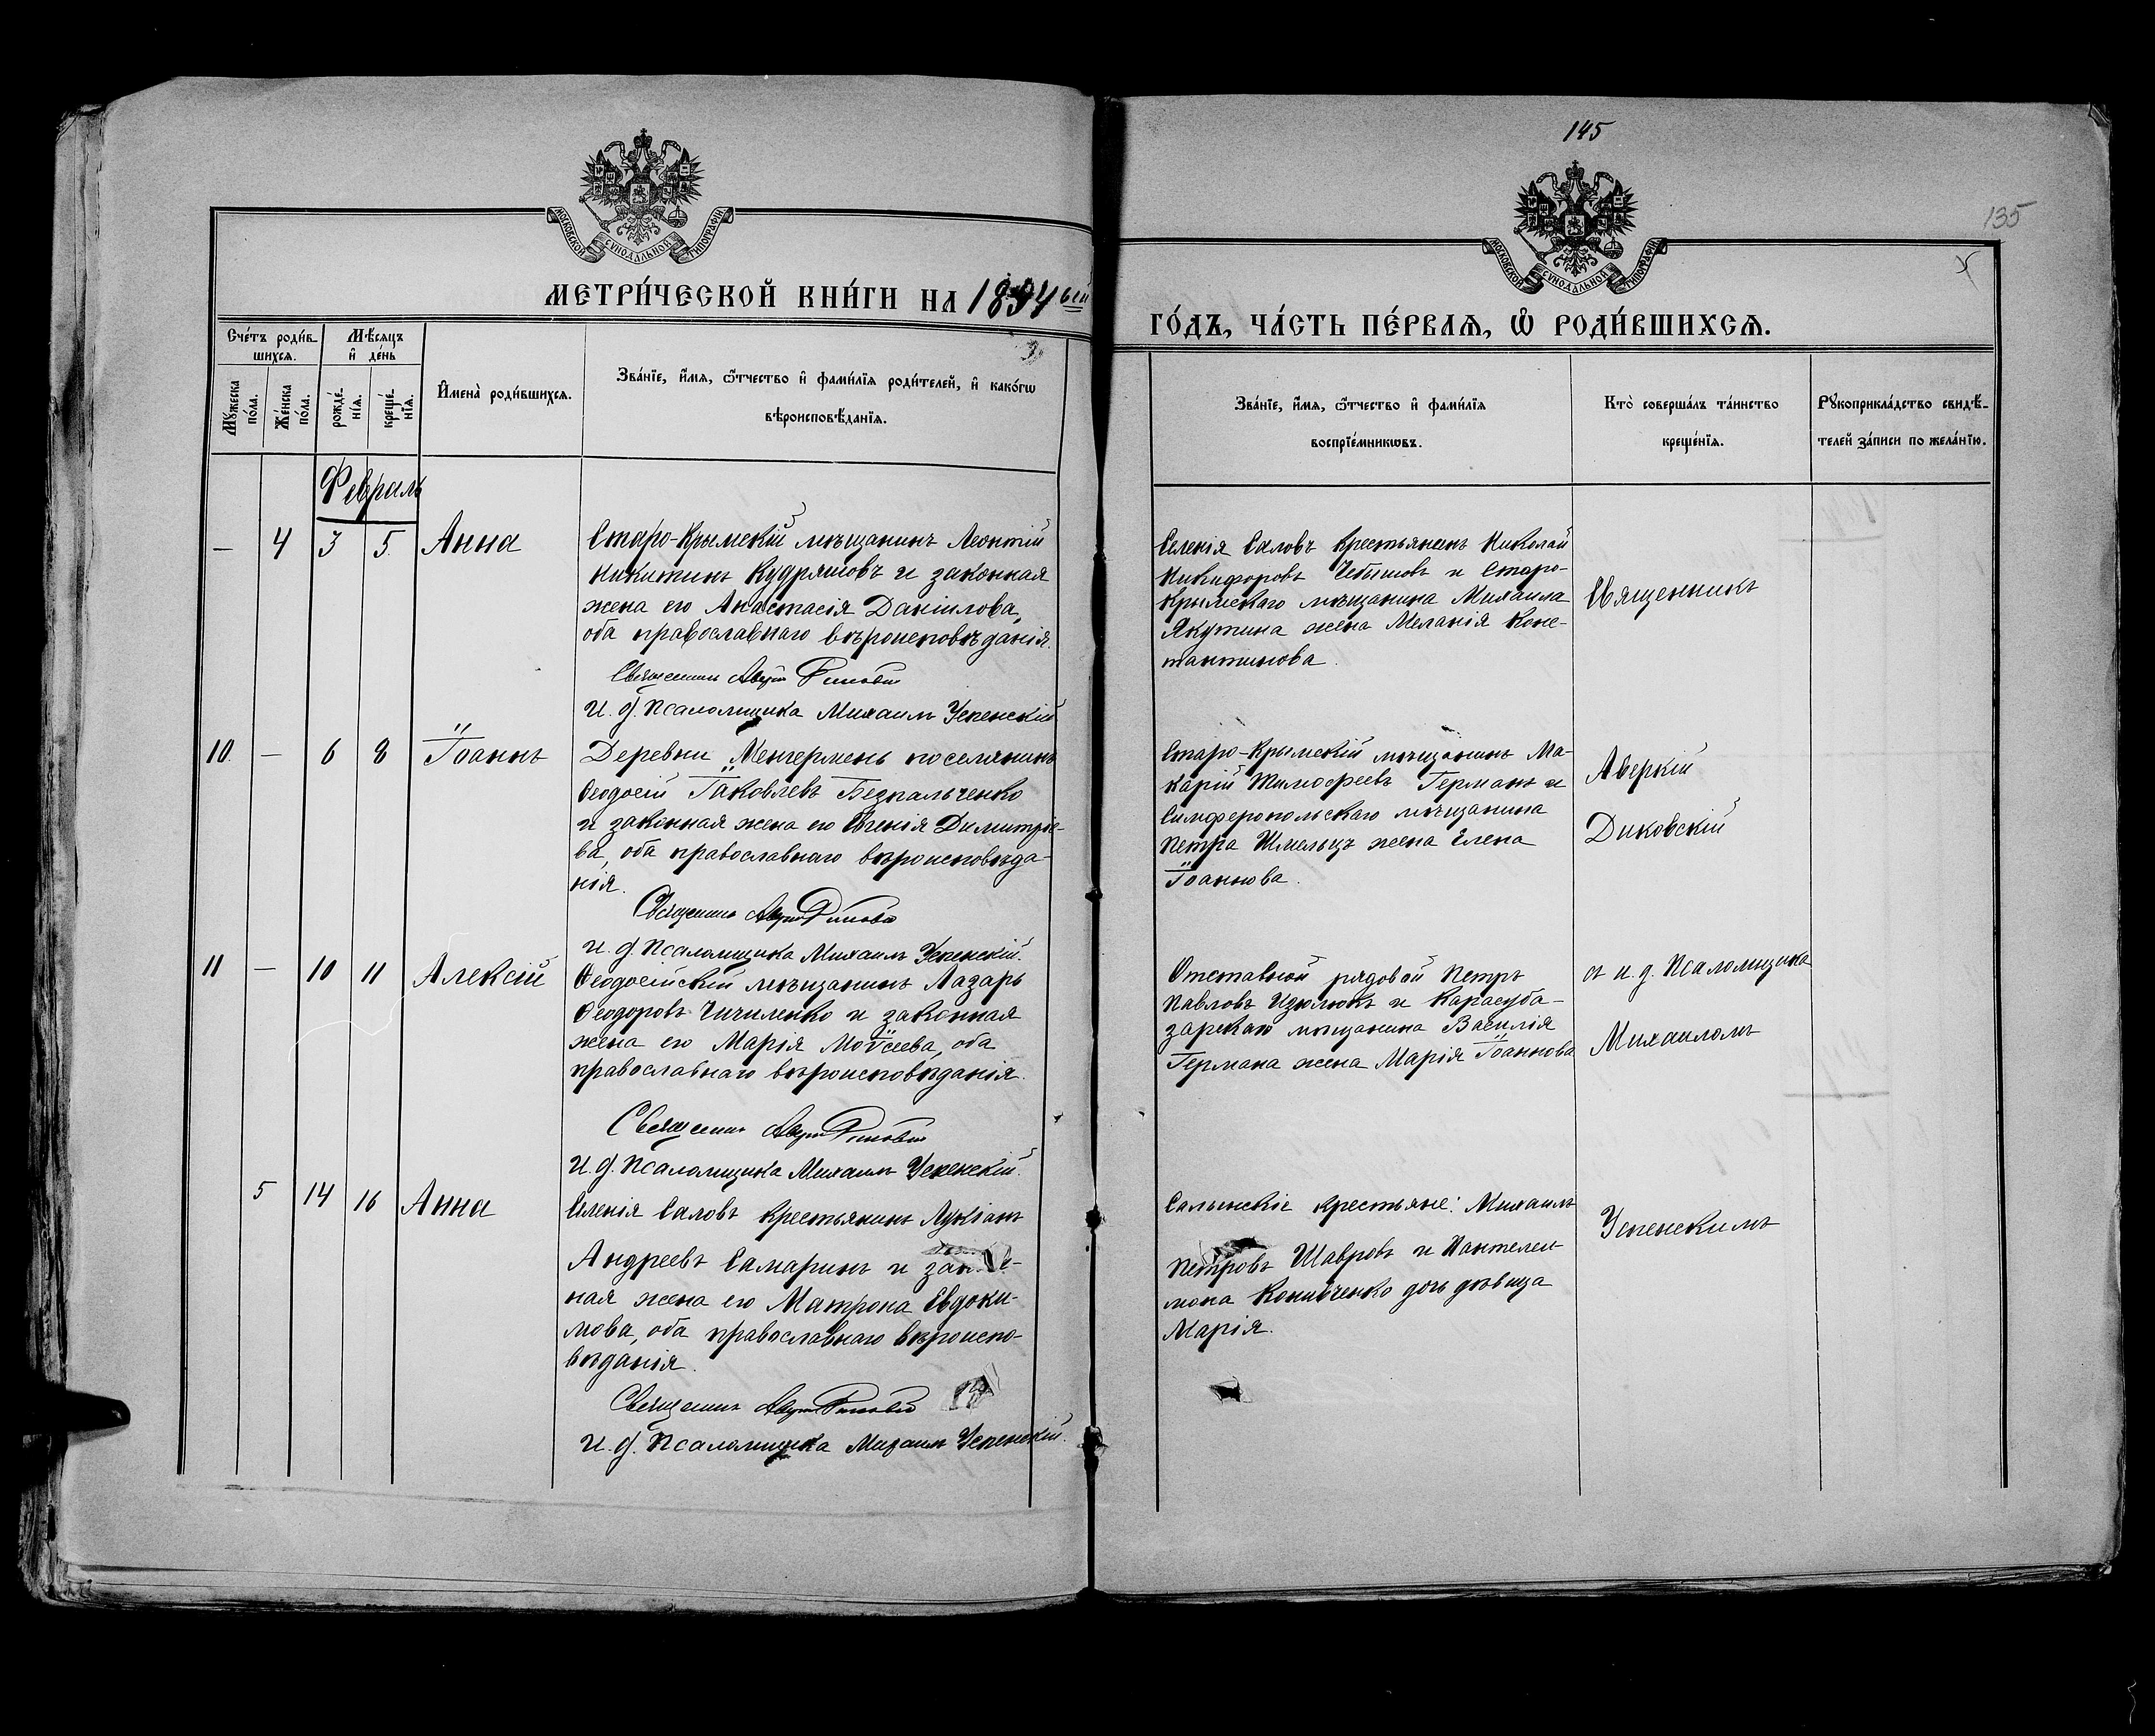 145
135
МОСКОВСКОЙ СѴНОДАЛЬНОЙ ТИПОГРАФІИ
МОСКОВСКОЙ СѴНОДАЛЬНОЙ ТИПОГРАФІИ
МЕТРИ́ЧЕСКОЙ КНИ́ГИ НА 1894 ый
ГО́ДЪ, ЧА́СТЬ ПЕ́РВАѦ, Ѡ҆ РОДИ́ВШИХСѦ.
Сче́тъ роди́в-
шихсѧ.
Мѣ́сѧцъ
и҆ де́нь
Мꙋ́жеска
по́ла.
Же́нска
по́ла.
рожде́-
нїѧ.
креще́-
нїѧ.
И҆мена̀ роди́вшихсѧ.
Зва́нїе, и҆́мѧ, ѻ҆́тчество и҆ фами́лїѧ роди́телей, и҆ како́гѡ
вѣроисповѣ́данїѧ.
Зва́нїе, и҆́мѧ, ѻ҆́тчество и҆ фами́лїѧ
воспрїе́мникѡвъ.
Кто̀ соверша́лъ та́инство
креще́нїѧ.
Рꙋкоприкла́дство свидѣ́-
телей за́писи по жела́нїю.
Февраль
— 4 3 5. Анна
Старо-Крымскій мѣщанинъ Леонтій
Никитинъ Кудряшовъ и законная
жена его Анастасія Даніилова,
оба православнаго вѣроисповѣданія.
Священникъ
И. д. Псаломщика Михаилъ Успенскій
Селенія Саловъ крестьянинъ Николай
Никифоровъ Чебышовъ и Старо-
Крымскаго мѣщанина Михаила
Якутина жена Меланія Конс-
тантинова.
Священникъ
10. — 6 8 Іоаннъ
Деревни Менгермень поселянинъ
Ѳеодосій Іаковлевъ Безпальченко
и законная жена его Евгенія Димитріе-
ва, оба православнаго вѣроисповѣда-
нія.
Священникъ
И. д. Псаломщика Михаилъ Успенскій.
Старо-Крымскій мѣщанинъ Ма-
карій Тимофеевъ Германъ и
Симферопольскаго мѣщанина
Петра Шмельцъ жена Елена
Іоаннова.
Аверкій
Диковскій
11 — 10 11 Алексій
Ѳеодосійскій мѣщанинъ Лазарь
Ѳеодоровъ Чичиленко и законная
жена его Марія Моѵсеева, оба
православнаго вѣроисповѣданія.
Священникъ
И. д. Псаломщика Михаилъ Успенскій.
Отставной рядовой Петръ
Павловъ Изюлюкъ и Карасуба-
зарскаго мѣщанина Василія
Германа жена Марія Іоаннова
съ и. д. Псаломщика
Михаиломъ
5 14 16 Анна
Селенія Саловъ крестьянинъ Лукіанъ
Андреевъ Самаринъ и
ная жена его Матрона Евдоки-
мова, оба православнаго вѣроиспо-
вѣданія.
Священникъ
И. д. Псаломщика Михаилъ Успенскій.
Салынскіе крестьяне: Михаилъ
Петровъ Шавровъ и Пантелеи-
мона Конивченко дочь дѣвица
Марія.
Успенскимъ